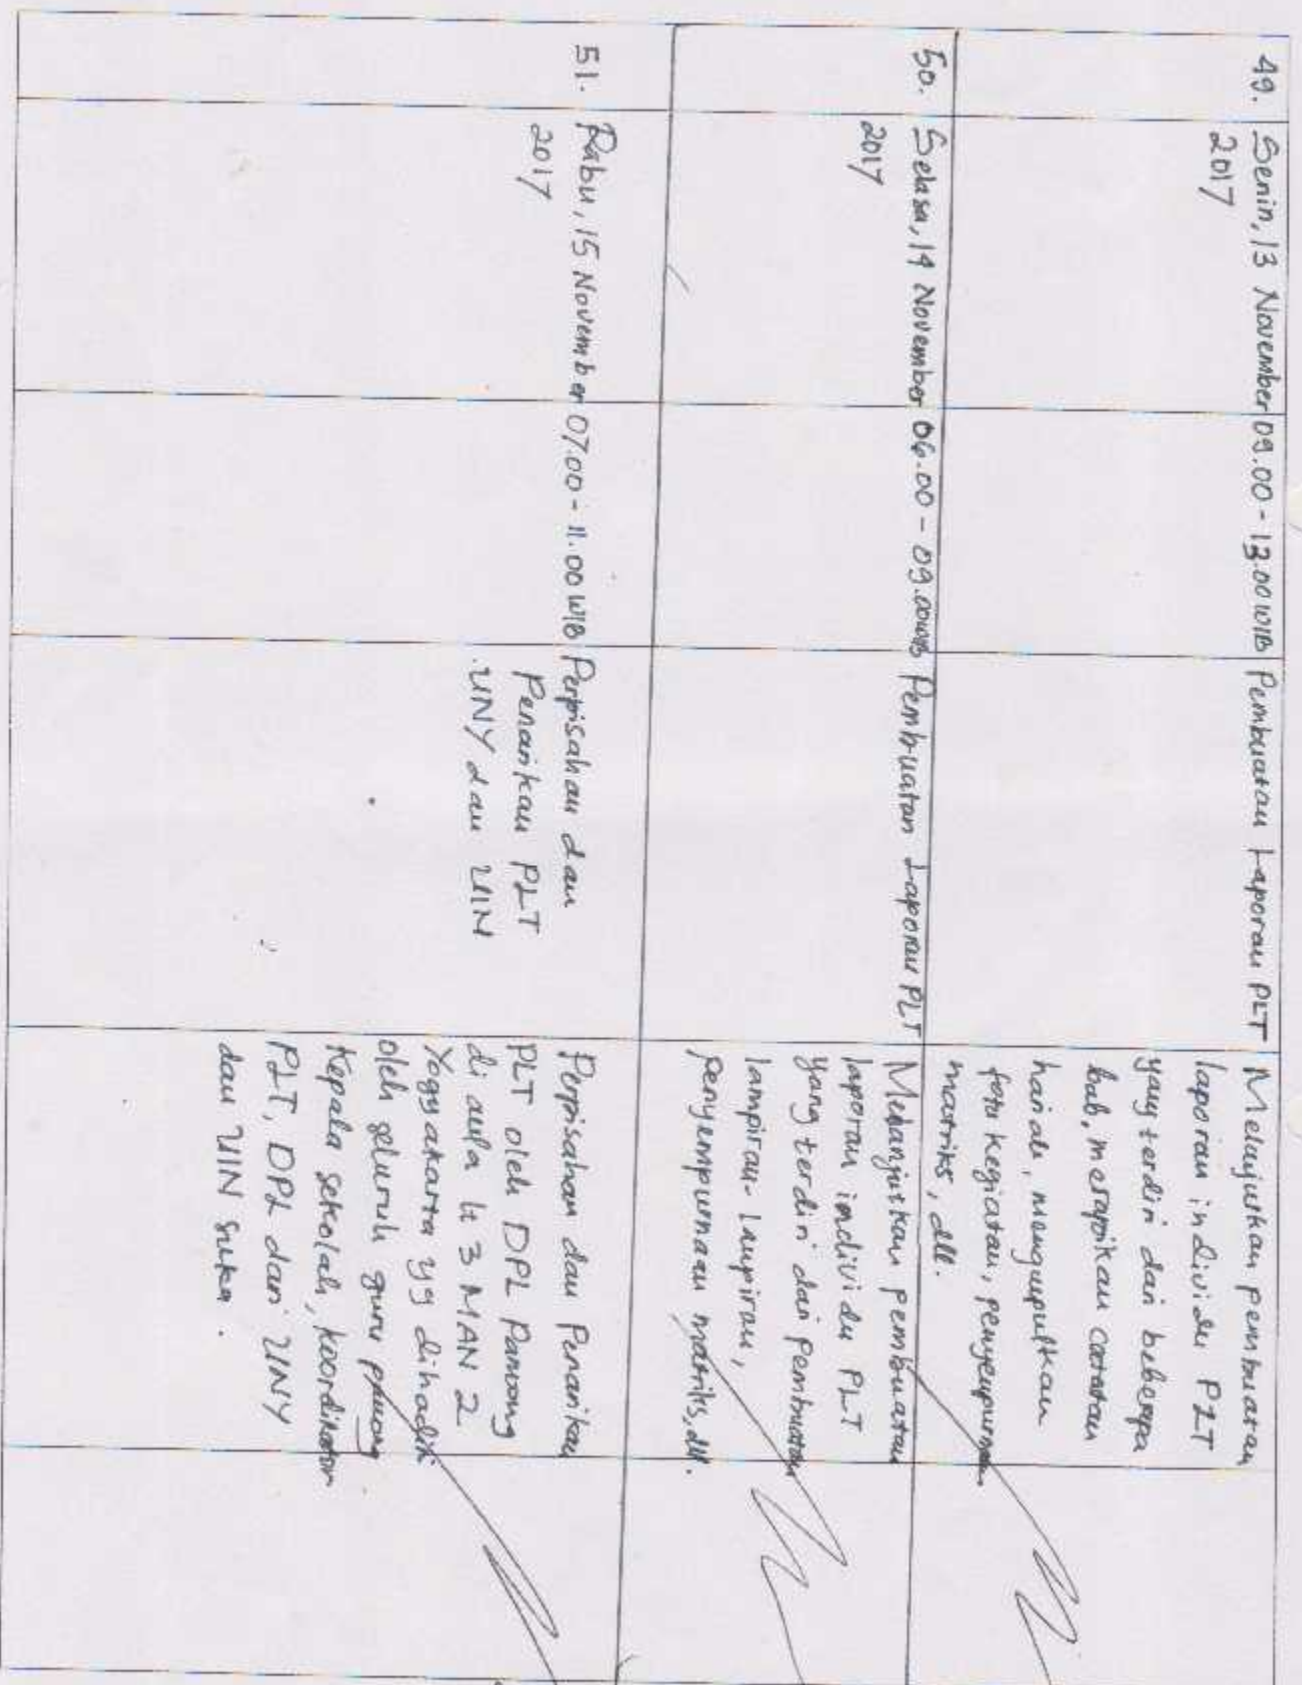 49.
Senin, 13 November
2017
09.00 - 13.00 WIB
Pembuatan Laporan PLT
Melajutkan pembuatan
laporan individu PLT
yang terdiri dari beberapa
bab, merapikan catatan
harian, mengumpulkan
foto kegiatan, penyempurnaan
matriks, dll.
50.
Selasa, 14 November
2017
06.00 - 09.00 WIB
Pembuatan Laporan PLT
Melanjutkan pembuatan
laporan individu PLT
yang terdiri dari pembuatan
lampiran-lampiran,
penyempurnaan matriks, dll.
51.
Rabu, 15 November
2017
07.00 - 11.00 WIB
Perpisahan dan
Penarikan PLT
UNY dan UIN
Perpisahan dan Penarikan
PLT oleh DPL Pamong
di aula lt 3 MAN 2
Yogyakarta yg dihadiri
oleh seluruh guru pamong
Kepala sekolah, koordinator
PLT, DPL dari UNY
dan UIN suka.